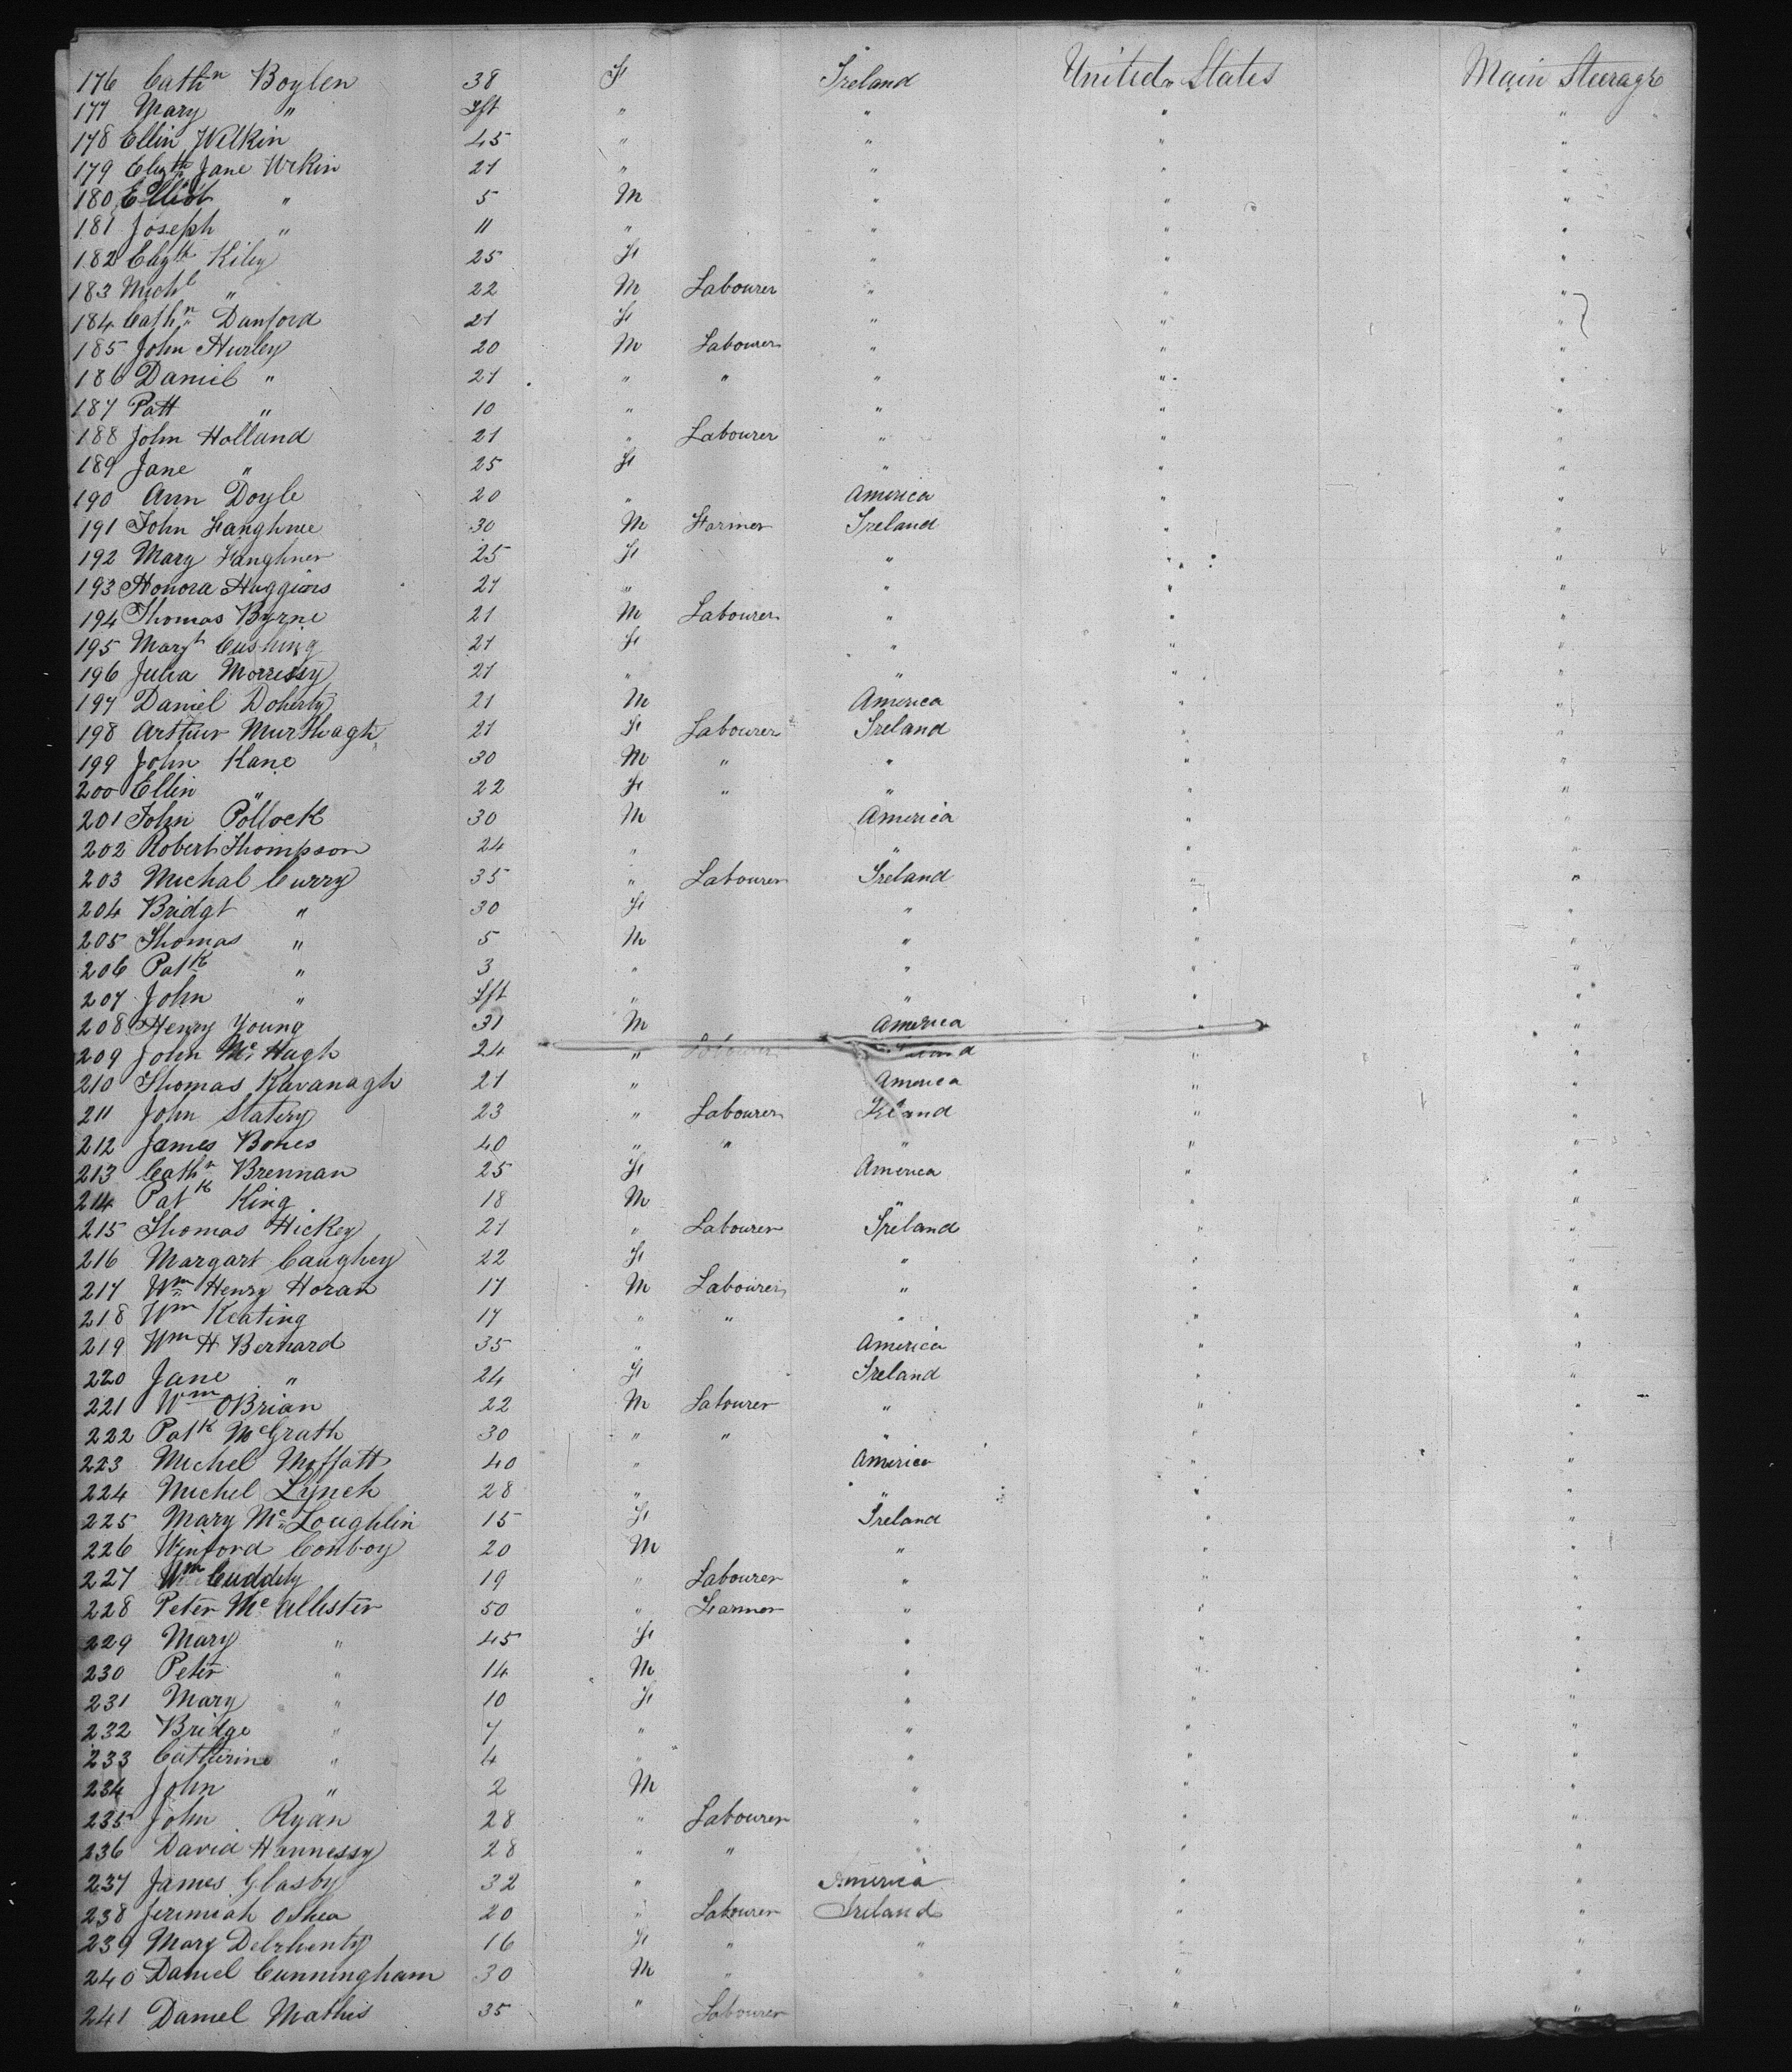 176 Cathn Boylen 38 F Ireland United States Main Steerage
177 Mary " Ift " " " "
178 Ellin Welkin 45 " " " "
179 Elizth Jane 21 " " " "
180 Elliot " 5 M " " "
181 Joseph " 11 " " " "
182 Elizth Kiley 25 F " " "
183 Michl " 22 M Labourer " " "
184 Cathn Danford 21 F " " "
185 John Hurley 20 M Labourer " " "
186 Daniel " 21 " " " " "
187 Patt " 10 " " " "
188 John Holland 21 " Labourer " " "
189 Jane " 25 F " " "
190 Ann Doyle 20 " America " "
191 John 30 M Farmer Ireland " "
192 Mary 25 F " " "
193 Honora Huggins 21 " " " "
194 Thomas Byrne 21 M Labourer " " "
195 Margt Cushing 21 F " " "
196 Julia Morrissy 21 " " " "
197 Daniel Doherty 21 M America " "
198 Arthur Murthagh 21 F Labourer Ireland " "
199 John Kane 30 M " " " "
200 Ellin " 22 F " " " "
201 John Pollock 30 M America " "
202 Robert Thompson 24 " " " "
203 Michal Curry 35 " Labourer Ireland " "
204 Bridgt " 30 F " " "
205 Thomas " 5 M " " "
206 Patk " 3 " " " "
207 John " Ift " " " "
208 Henry Young 31 M America " "
209 John Mc Hugh 24 " Labourer Ireland " "
210 Thomas Kavanagh 21 " America " "
211 John Slatery 23 " Labourer Ireland " "
212 James Bones 40 " " " " "
213 Cathn Brennan 25 F America " "
214 Patk King 18 M " " "
215 Thomas Hickey 21 " Labourer Ireland " "
216 Margart Caughey 22 F " " "
217 Wm Henry Horan 17 M Labourer " " "
218 Wm Keating 17 " " " " "
219 Wm H Bernard 35 " America " "
220 Jane " 24 F Ireland " "
221 Wm OBrian 22 M Labourer " " "
222 Patk McGrath 30 " " " " "
223 Michel Moffatt 40 " America " "
224 Michel Lynch 28 " " " "
225 Mary Mc Loughlin 15 F Ireland " "
226 Winford Conboy 20 M " " "
227 Wm Cuddihy 19 " Labourer " " "
228 Peter Mc Allister 50 " Farmer " " "
229 Mary " 45 F " " "
230 Peter " 14 M " " "
231 Mary " 10 F " " "
232 Bridge " 7 " " " "
233 Catherine " 4 " " " "
234 John " 2 M " " "
235 John Ryan 28 " Labourer " " "
236 David Hennessy 28 " " " "
237 James Glasby 32 " America " "
238 Jerimiah OShea 20 " Labourer Ireland " "
239 Mary 16 F " " " "
240 Daniel Cunningham 30 M " " " "
241 Daniel Mathis 35 " Labourer " "